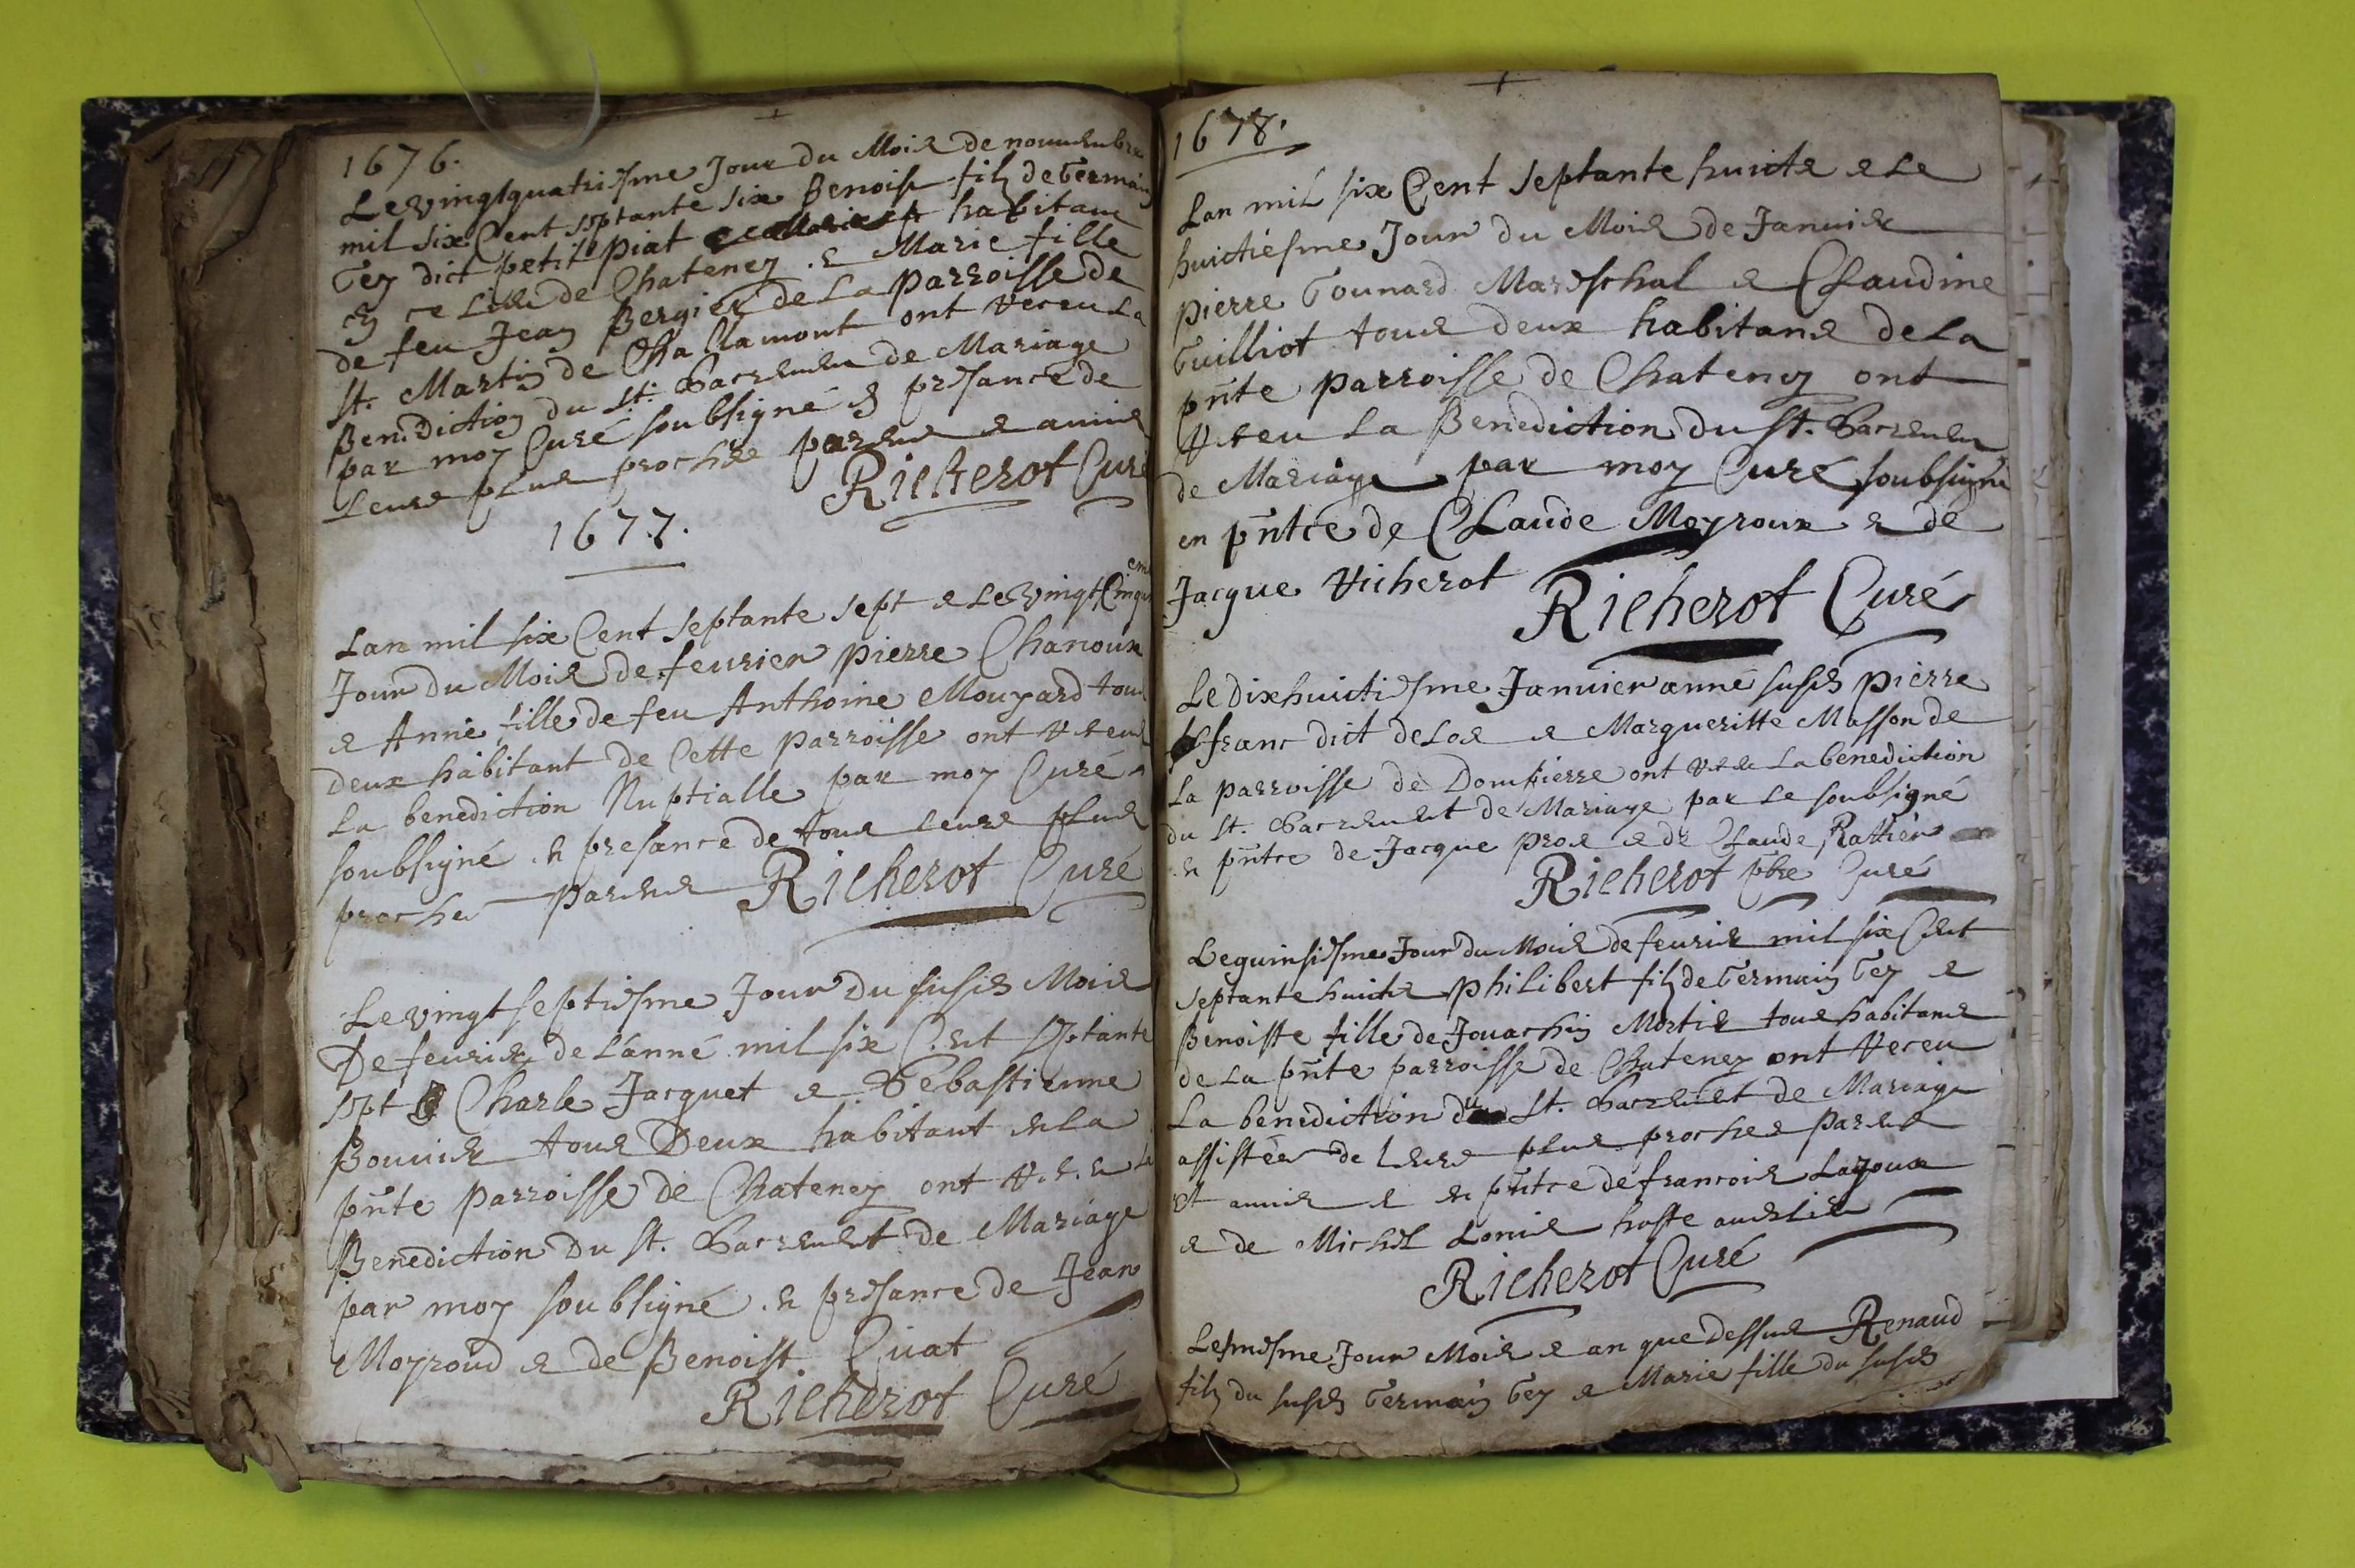 1676.
Le vingtquatriesme Jour du Mois de nouembre
mil six Cent septante six Benoist filz de Germain
Gey dict petit piat habitans
en ce lieu de Chateney. & Marie fille
de feu Jean Bergier de La parroisse de
st. Martin de Challamont ont receu La
Benediction du st. Sacrement de Mariage
par moy Curé soubsigné en presance de
Leurs plus proches parens & amis
Richerot Curé
1677.
Lan mil six Cent septante sept & Le vingt Cinqu
em
Jour du Mois de feurier pierre Chanoux
& Anne fille de feu Anthoine Mouyard tous
deux habitant de Cette parroisse ont receus
La benediction Nuptialle par moy Curé
soubsigné en presance de tous leurs plus
proches parens Richerot Curé
Le vingt septiesme Jour du susdt Mois
De feurier de L'anné mil six Cent septante
sept Charle Jacquet & Sebastienne
Bouuier tous Deux habitant en La
pnte parroisse de Chateney ont receu La
Benediction Du st. Sacrement de Mariage
par moy soubsigné en presance de Jean
Moyroud & de Benoist Cuiat
Richerot Curé
1678.
Lan mil six Cent septante huicte & Le
huictiesme Jour du Mois de Januier
pierre Gounard Mareschal & Claudine
Guilliot tous deux habitans de La
pnte parroisse de Chateney ont
receu La Benediction du st. Sacrement
de Mariage par moy Curé soubsigné
en pntce de Claude Moyroux & de
Jacque richerot Richerot Curé
Le dixhuictiesme Januier anné susdt pierre
franc dict de Los & Margueritte Masson de
La parroisse de Dompierre ont receu La benediction
du st. Sacrement de Mariage par Le soubsigné
en pntce de Jacque pros & de Claude Rathier
Richerot pbre Curé
Le quinsiesme Jour du Mois de feurier mil six Cent
septante huicte philibert filz de Germain Gey &
Benoiste fille de Jouachin Mortier tous habitans
de La pnte parroisse de Chateney ont receu
La benediction du st. Sacrement de Mariage
assistées de leurs plus proches parens
et amis & en pntce de francois Layoux
& de Michel Lonis hoste audt lieu
Richerot Curé
Le mesme Jour Mois & an que dessus Renaud
filz du susdt Germain Gey & Marie fille du susdt